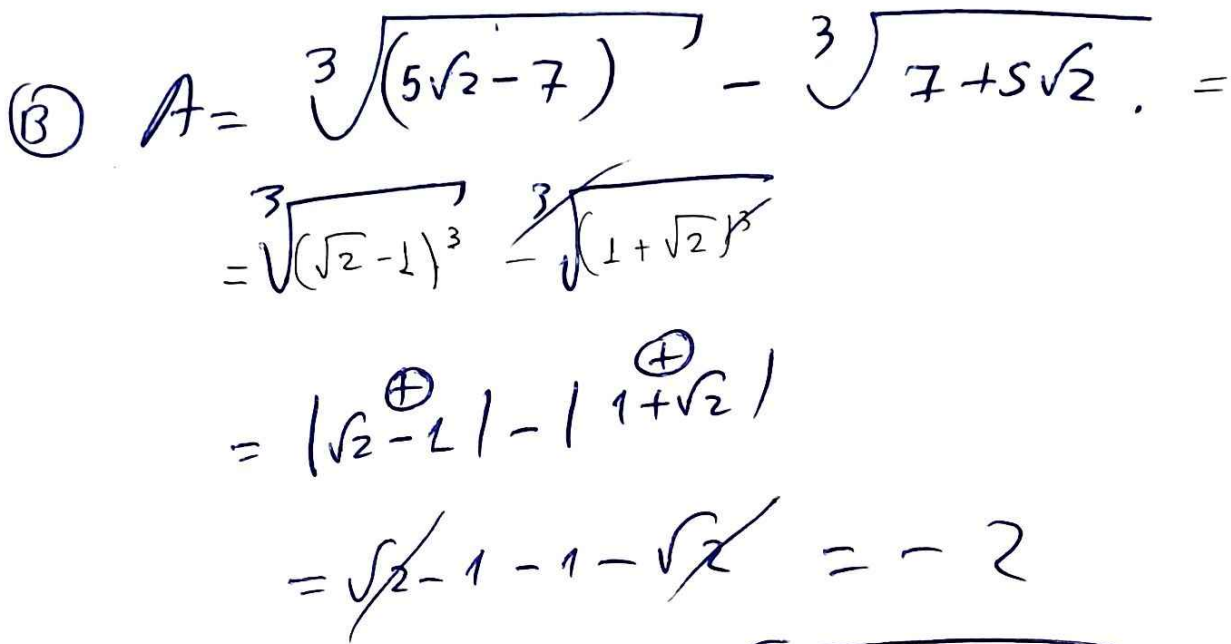 Ⓑ A = ∛(5√2 - 7) - ∛7 + 5√2 . =
= ∛(√2 - 1)³ - ∛(1 + √2)³
⊕ ⊕
= |√2 - 1| - |1 + √2|
= √2 - 1 - 1 - √2 = - 2